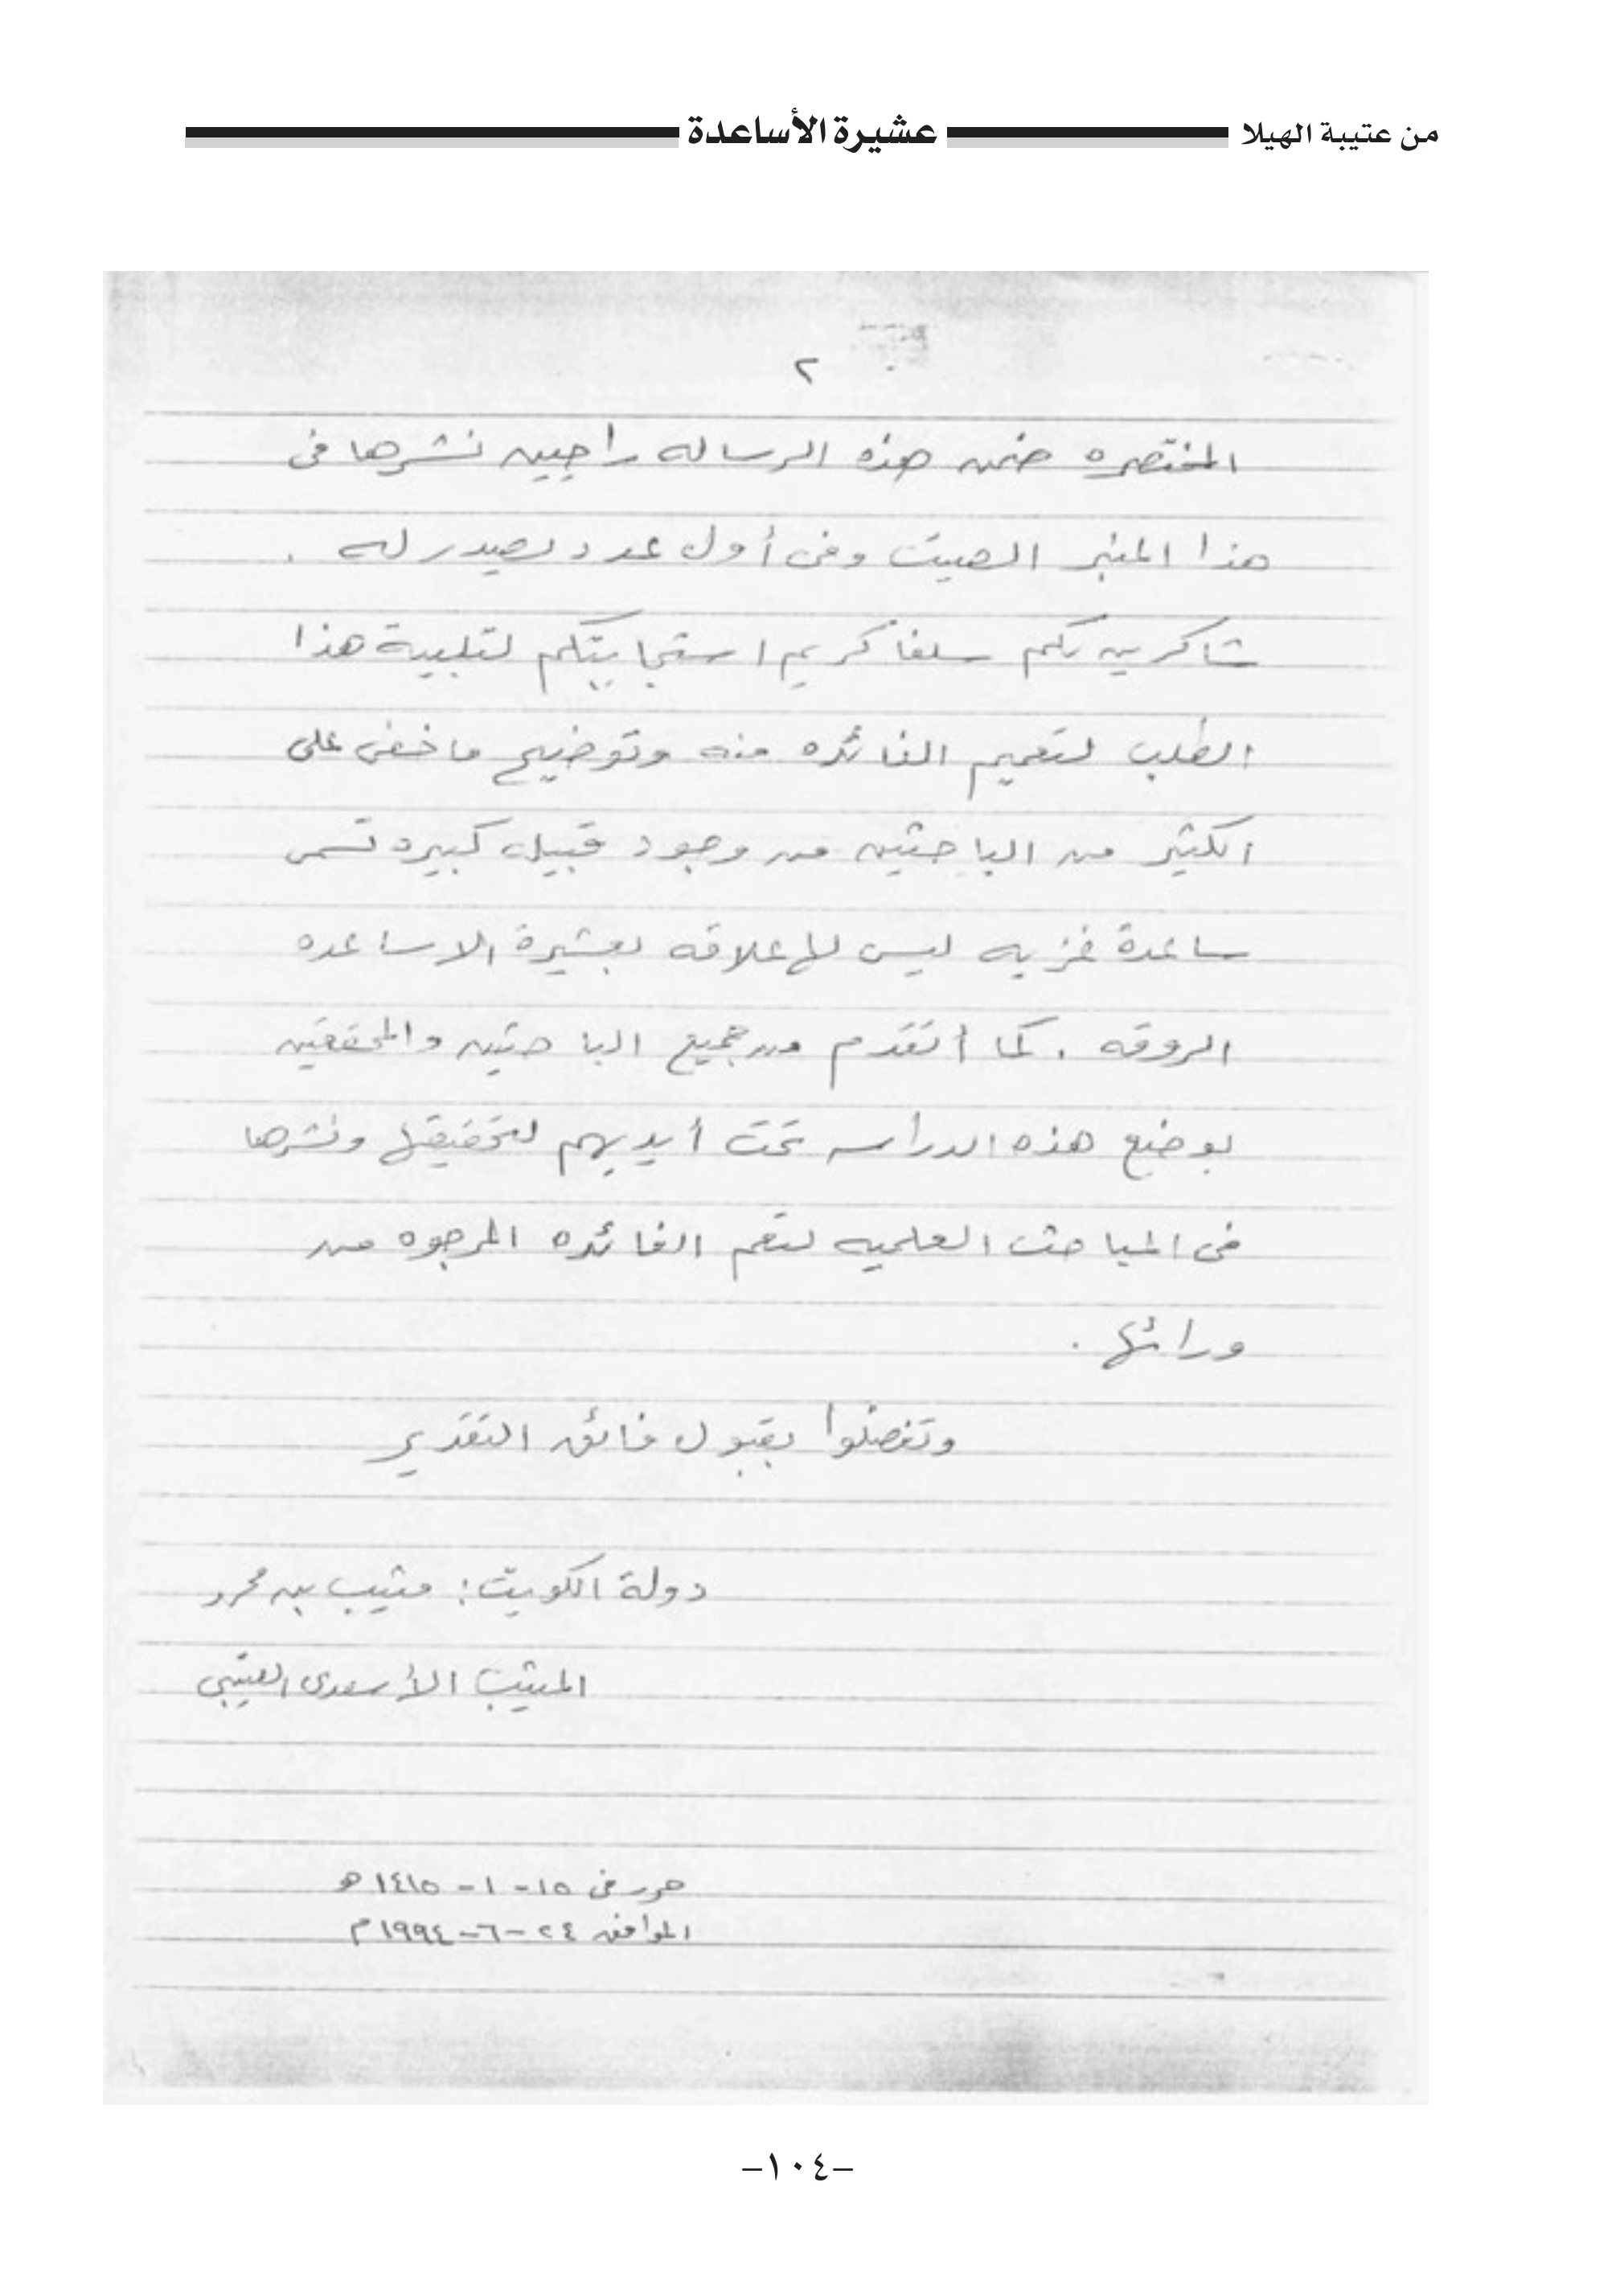 من عتيبة الهيلا عشيرة الأساعدة
٢
المختصره ضمن هذه الرساله راجين نشرها فى
هذا المنبر الصيت وفى أول عدد يصدر له .
شاكرين لكم سلفاً كريم استجابتكم لتلبية هذا
الطلب لتعميم الفائده منه وتوضيح ما خفى على
الكثير من الباحثين من وجود قبيله كبيره تسمى
ساعدة غزيه ليس لها علاقه بعشيرة الاساعده
الروقه . كما أتقدم من جميع الباحثين والمحققين
بوضع هذه الدراسه تحت أيديهم لتحقيقها ونشرها
فى المباحث العلميه لتعم الفائده المرجوه من
ورائها .
وتفضلوا بقبول فائق التقدير
دولة الكويت : مثيب بن محمد
المثيب الأسعدى العتيبى
حرر فى ١٥ - ١ - ١٤١٥ هـ
الموافق ٢٤ - ٦ - ١٩٩٤ م
-١٠٤-